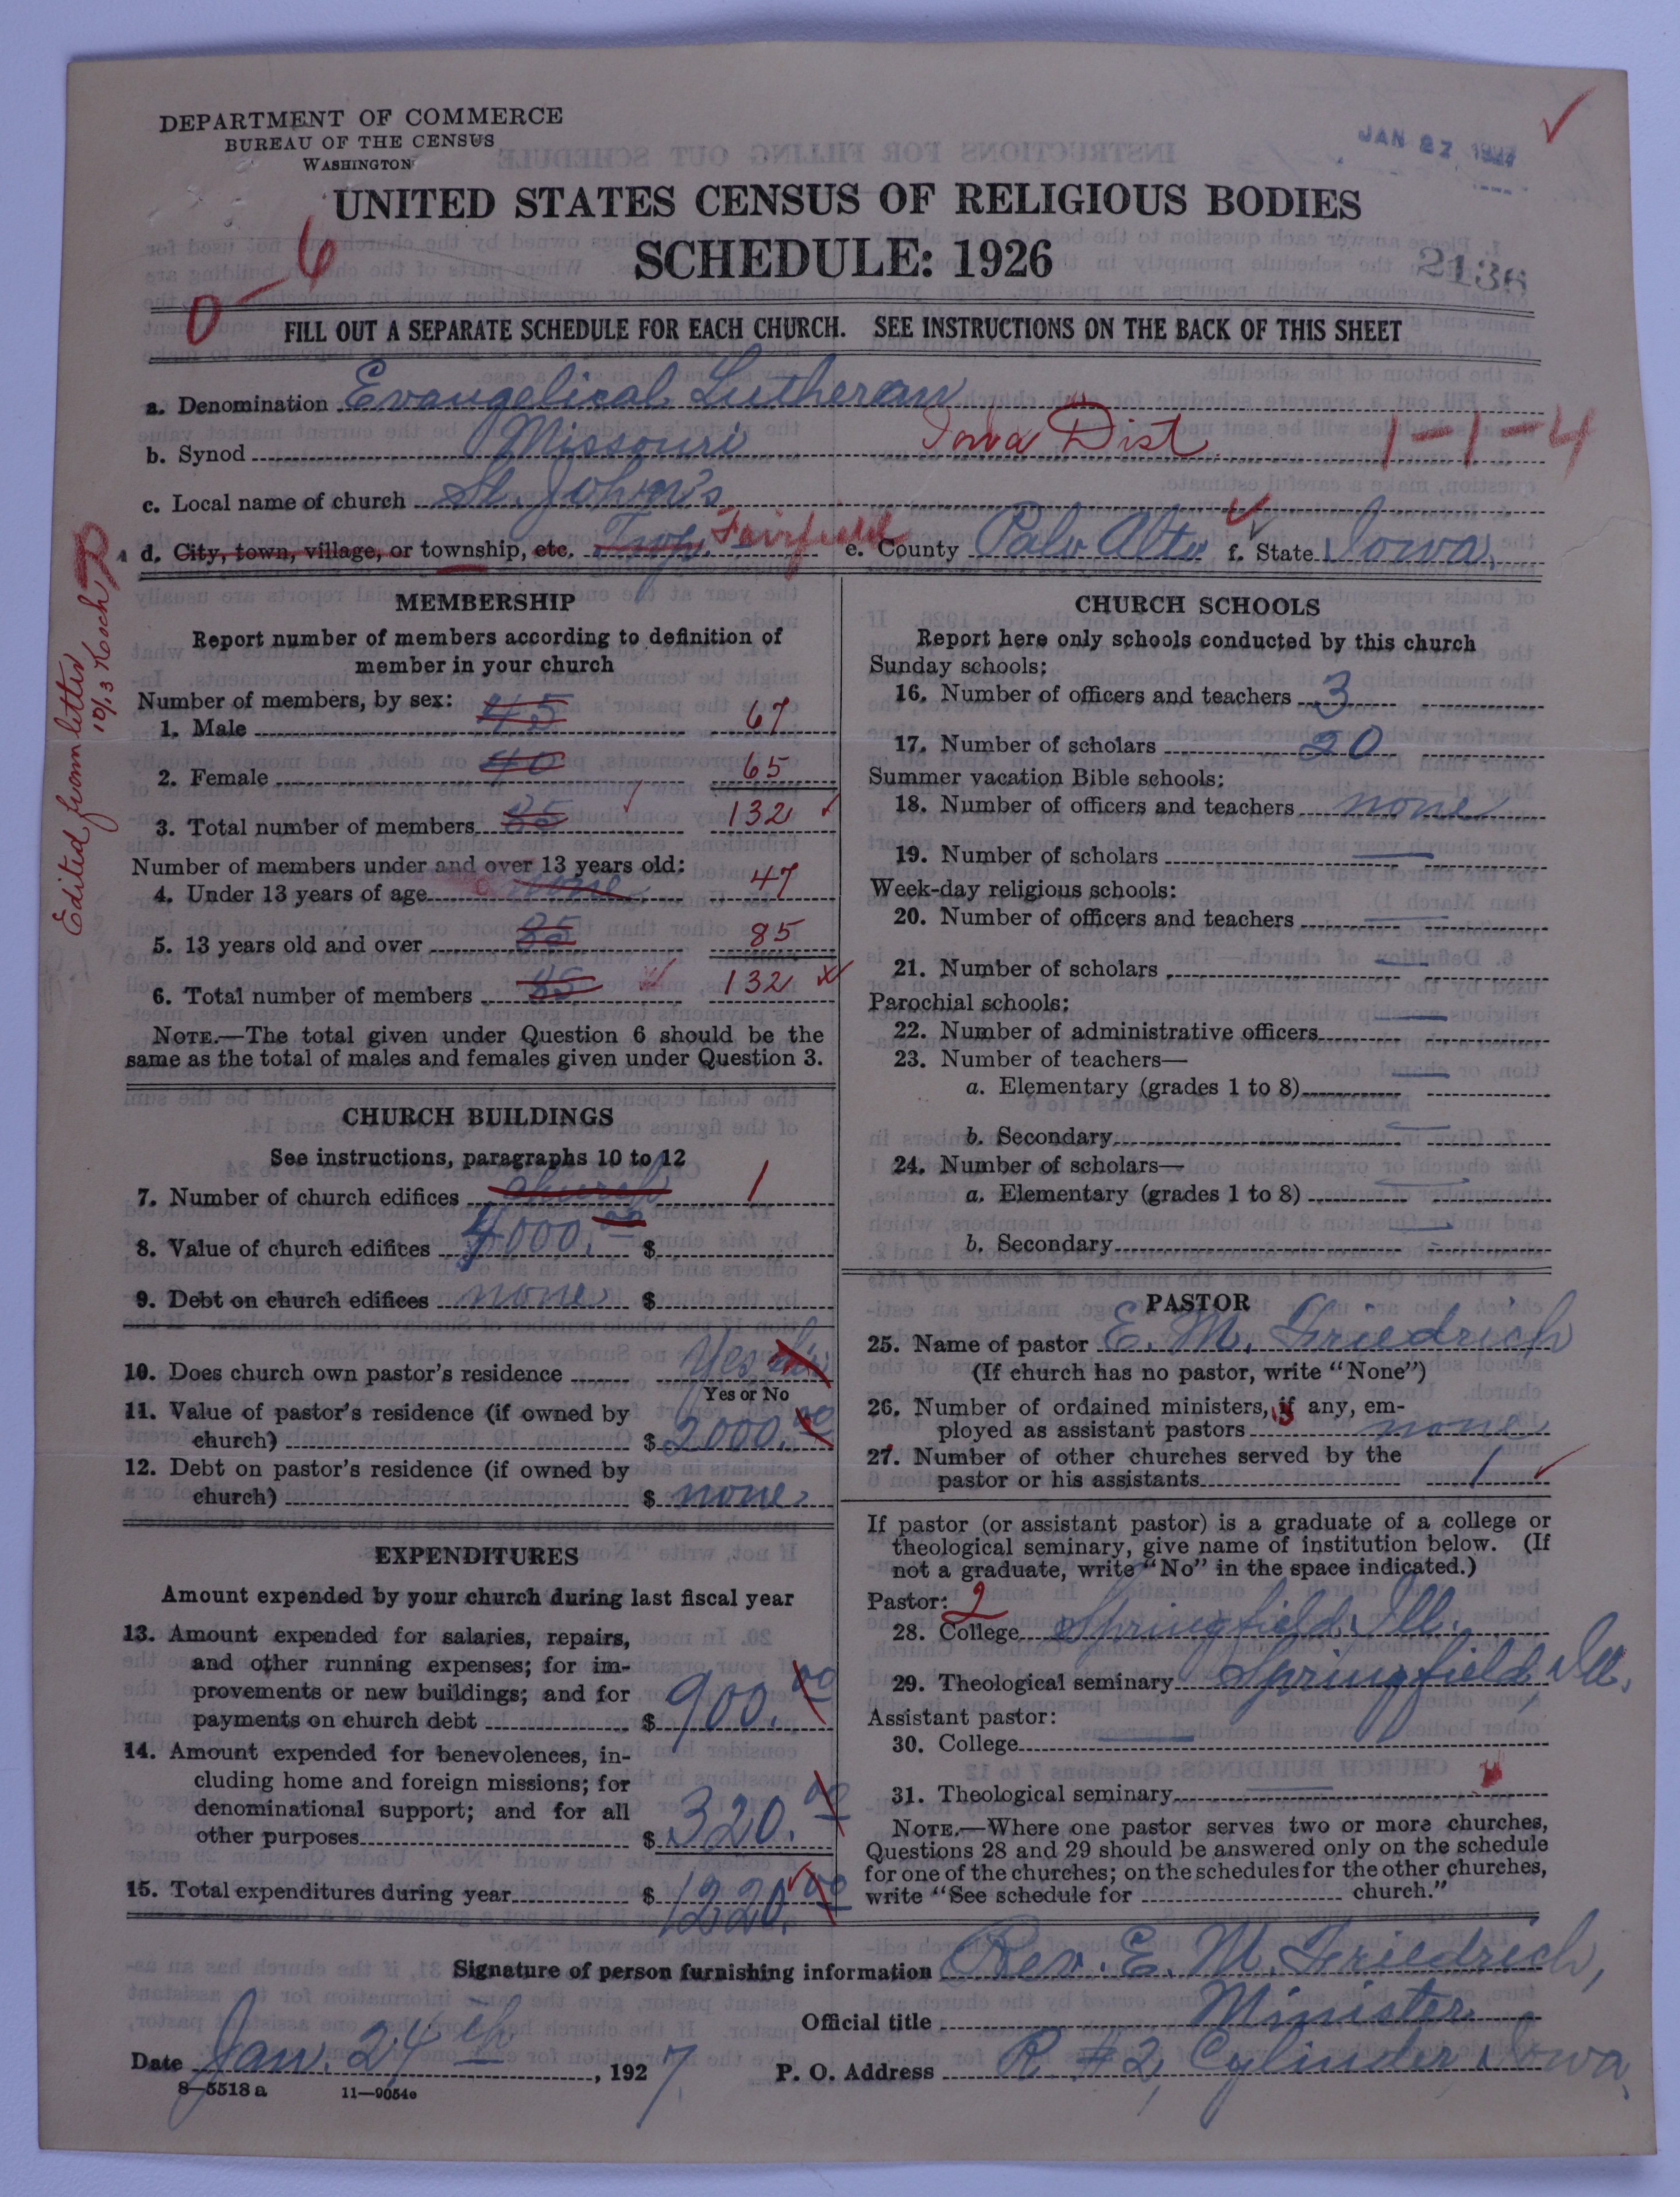 DEPARTMENT OF COMMERCE
BUREAU OF THE CENSUS
WASHINGTON
JAN 27 1927
UNITED STATES CENSUS OF RELIGIOUS BODIES
SCHEDULE: 1926
0-6
2136
FILL OUT A SEPARATE SCHEDULE FOR EACH CHURCH. SEE INSTRUCTIONS ON THE BACK OF THIS SHEET
a. Denomination Evangelical Lutheran
b. Synod Missouri Iowa Dist. 1-1-4
c. Local name of church St. John's
d. City, town, village, or township, etc. Twp. Fairfield e. County Palo Alto f. State Iowa.
Edited from letter
10/13 Koch
MEMBERSHIP
Report number of members according to definition of
member in your church
Number of members, by sex:
1. Male 45 67
2. Female 40 65
3. Total number of members 85 132
Number of members under and over 13 years old:
4. Under 13 years of age none 47
5. 13 years old and over 85 85
6. Total number of members 85 132
NOTE.—The total given under Question 6 should be the
same as the total of males and females given under Question 3.
CHURCH BUILDINGS
See instructions, paragraphs 10 to 12
7. Number of church edifices church 1
8. Value of church edifices 4000.00 $
9. Debt on church edifices none $
10. Does church own pastor's residence Yes
Yes or No
11. Value of pastor's residence (if owned by
church) $ 2000.00
12. Debt on pastor's residence (if owned by
church) $ none
EXPENDITURES
Amount expended by your church during last fiscal year
13. Amount expended for salaries, repairs,
and other running expenses; for im-
provements or new buildings; and for
payments on church debt $ 900.00
14. Amount expended for benevolences, in-
cluding home and foreign missions; for
denominational support; and for all
other purposes $ 320.00
15. Total expenditures during year $ 1220.00
CHURCH SCHOOLS
Report here only schools conducted by this church
Sunday schools:
16. Number of officers and teachers 3
17. Number of scholars 20
Summer vacation Bible schools:
18. Number of officers and teachers none
19. Number of scholars —
Week-day religious schools:
20. Number of officers and teachers —
21. Number of scholars —
Parochial schools:
22. Number of administrative officers —
23. Number of teachers—
a. Elementary (grades 1 to 8) —
b. Secondary —
24. Number of scholars—
a. Elementary (grades 1 to 8) —
b. Secondary —
PASTOR
25. Name of pastor E. M. Friedrich
(If church has no pastor, write "None")
26. Number of ordained ministers, if any, em-
ployed as assistant pastors none
27. Number of other churches served by the
pastor or his assistants 1
If pastor (or assistant pastor) is a graduate of a college or
theological seminary, give name of institution below. (If
not a graduate, write "No" in the space indicated.)
Pastor: 2
28. College Springfield, Ill.
29. Theological seminary Springfield, Ill.
Assistant pastor:
30. College —
31. Theological seminary —
NOTE.—Where one pastor serves two or more churches,
Questions 28 and 29 should be answered only on the schedule
for one of the churches; on the schedules for the other churches,
write "See schedule for church."
Signature of person furnishing information Rev. E. M. Friedrich,
Official title Minister
Date Jan. 24th, 1927 P. O. Address R. #2, Cylinder, Iowa.
8—5518 a 11—9054a